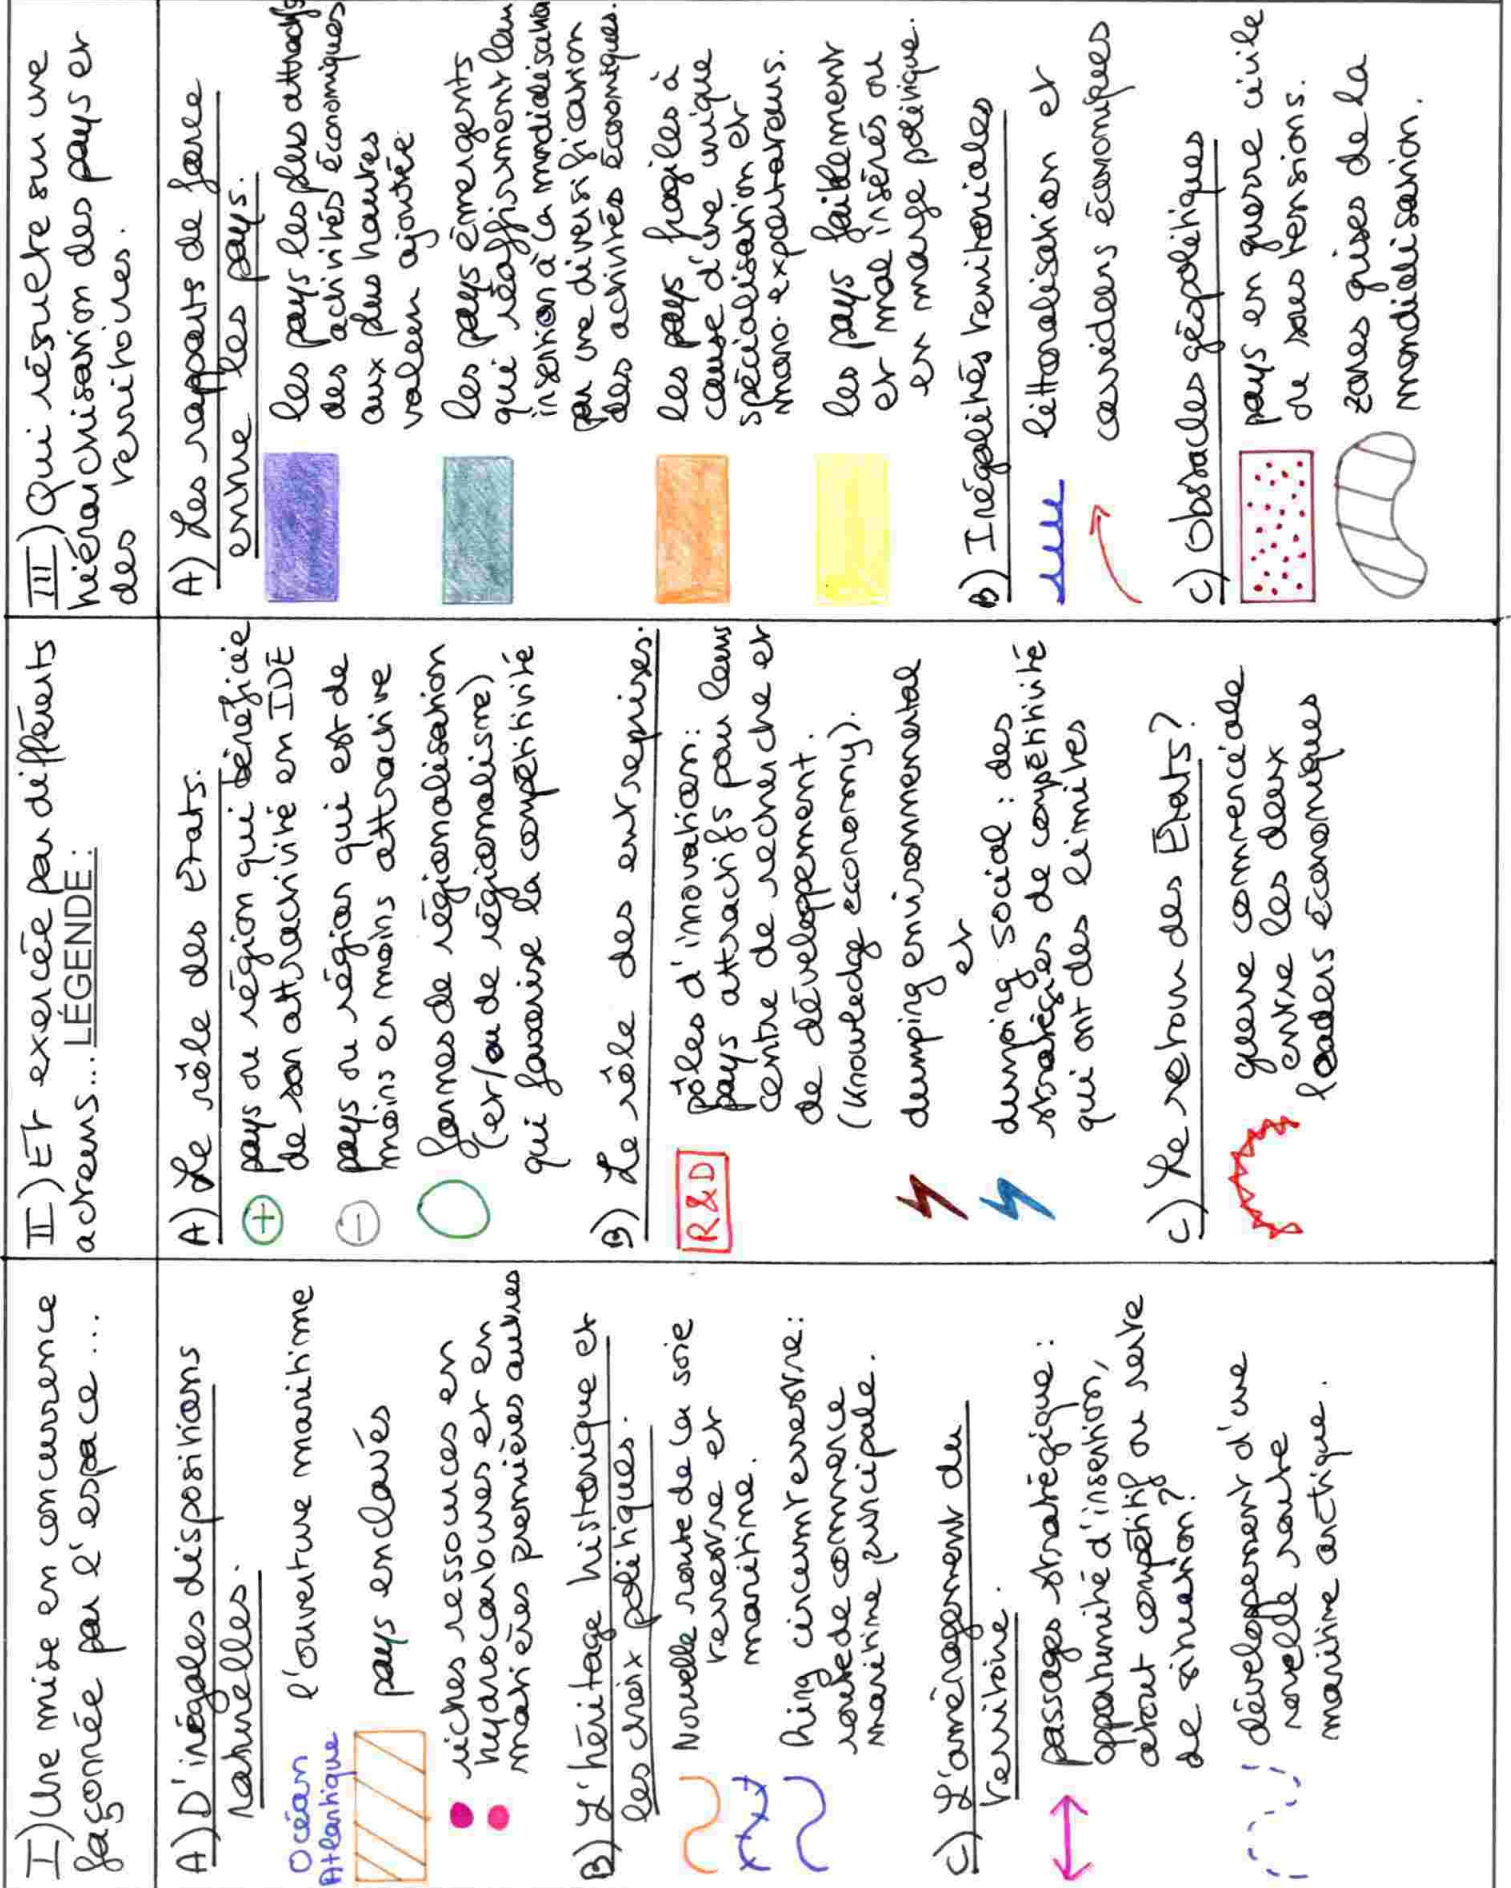 I) Une mise en concurrence
façonnée par l'espace ...
A) D'inégales dispositions
naturelles.
Océan
Atlantique
l'ouverture maritime
pays enclavés
riches ressources en
hydrocarbures et en
matières premières autres
B) L'héritage historique et
les choix politiques.
Nouvelle route de la soie
terrestre et
maritime.
Ring circumterrestre:
route de commerce
maritime principale.
C) L'aménagement du
territoire.
passages stratégique :
opportunité d'insertion,
atout compétitif ou rente
de situation?
développement d'une
nouvelle route
maritime arctique.
II) Et exercée par différents
acteurs... LÉGENDE:
A) Le rôle des Etats.
+ pays ou région qui bénéficie
de son attractivité en IDE
- pays ou région qui est de
moins en moins attractive
formes de régionalisation
(et/ou de régionalisme)
qui favorise la compétitivité
B) Le rôle des entreprises.
R&D
pôles d'innovation:
pays attractifs pour leurs
centre de recherche et
de développement.
(Knowledge economy).
dumping environnemental
et
dumping social : des
stratégies de compétitivité
qui ont des limites
C) Le retour des Etats?
guerre commerciale
entre les deux
leaders économiques
III) Qui résulte sur une
hiérarchisation des pays et
des territoires.
A) Les rapports de force
entre les pays.
les pays les plus attractifs
des activités économiques
aux plus hautes
valeur ajoutée
les pays émergents
qui réaffirment leur
insertion à la mondialisation
par une diversification
des activités économiques.
les pays fragiles à
cause d'une unique
spécialisation et
mono-exportateurs.
les pays faiblement
et mal insérés ou
en marge politique.
B) Inégalités territoriales
littoralisation et
corridors économiques
C) Obstacles géopolitiques
pays en guerre civile
ou sous tensions.
zones grises de la
mondialisation.